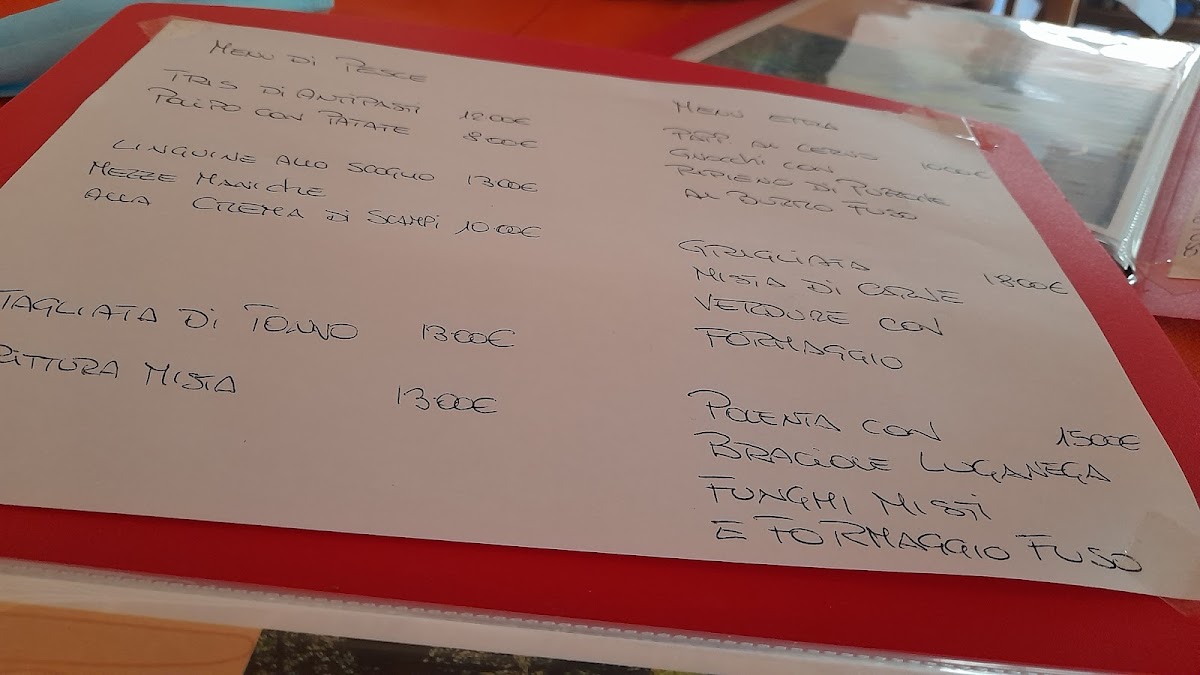 MENU DI PESCE
TRIS DI ANTIPASTI 12.00€
POLIPO CON PATATE 8.00€
LINGUINE ALLO SCOGLIO 13.00€
MEZZE MANICHE
ALLA CREMA DI SCAMPI 10.00€
TAGLIATA DI TONNO 13.00€
FRITTURA MISTA 13.00€
MENU
GNOCCHI CON
RIPIENO DI
AL BURRO FUSO
GRIGLIATA
MISTA DI CARNE 18.00€
VERDURE CON
FORMAGGIO
POLENTA CON 15.00€
BRACIOLE LUGANEGA
FUNGHI MISTI
E FORMAGGIO FUSO